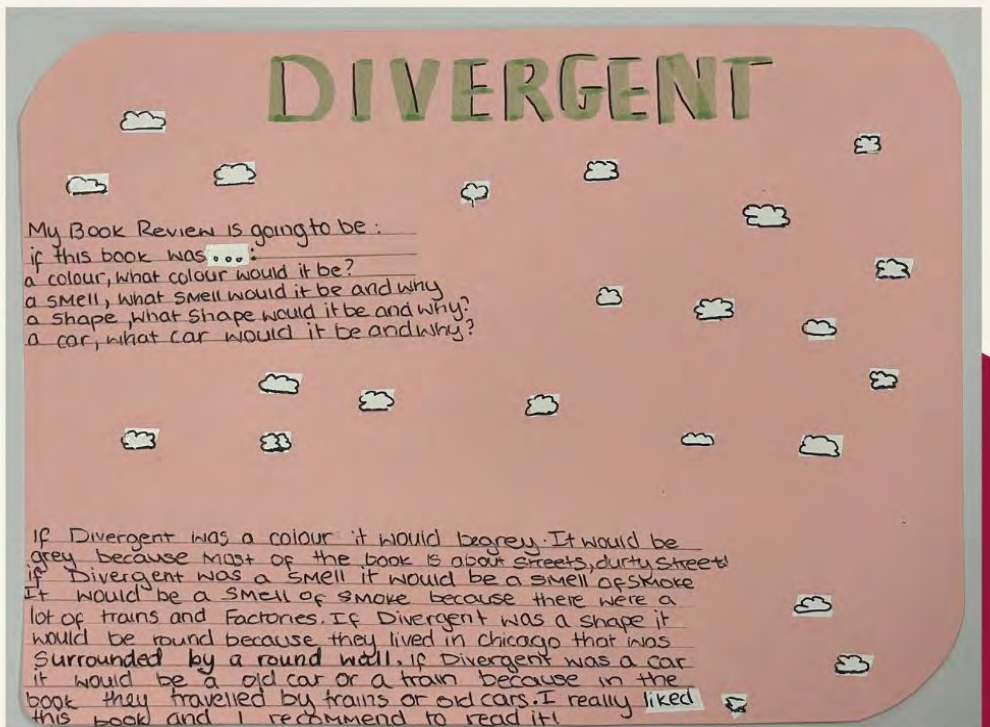 DIVERGENT
My Book Review is going to be :
if this book was ... :
a colour, what colour would it be?
a smell, what smell would it be and why
a shape, what shape would it be and why?
a car, what car would it be and why?
If Divergent was a colour it would be grey. It would be
grey because most of the book is about streets, durty streets
if Divergent was a smell it would be a smell of smoke
It would be a smell of smoke because there were a
lot of trains and Factories. If Divergent was a shape it
would be round because they lived in chicago that was
surrounded by a round wall. if Divergent was a car
it would be a old car or a train because in the
book they travelled by trains or old cars. I really liked
this book and I recommend to read it!